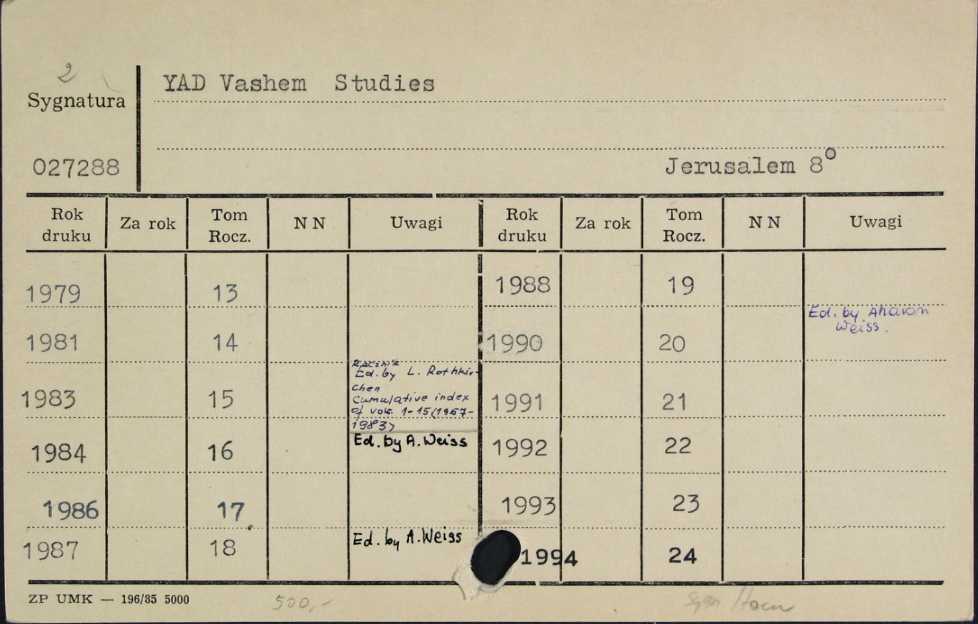 2
Sygnatura
YAD Vashem Studies
027288
Jerusalem 8°
Rok druku Za rok Tom Rocz. NN Uwagi Rok druku Za rok Tom Rocz. NN Uwagi
1979 13 1988 19
1981 14 1990 20 Ed. by Aharon
Weiss.
1983 15 1991 21
Ed. by L. Rothkir-
chen
Cumulative index
of vols. 1-15 (1957-
1983)
1984 16 Ed. by A. Weiss 1992 22
1986 17. 1993 23
1987 18 Ed. by A. Weiss 1994 24
ZP UMK — 196/85 5000
500,-